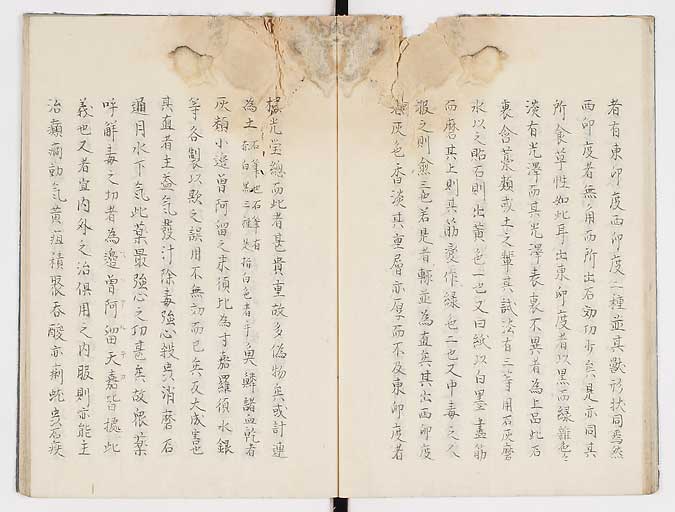 者有東印度西印度二種並其獸形狀同焉然
西印度者無角而所出石効功少矣是亦同其
所食草性如此耳出東印度者以黒而緑雜色
淡有光澤而其光澤表裏不異者為上品此石
裏含藁類或土之輩其試法有三等用石灰磨
水以之貼石則出黄色一也又曰紙以白墨畫筋
而磨其上則其筋變作緑色二也又中毒之人
服之則愈三也若是者輙並為直矣其出西印度
灰色香淡其重層亦厚而不及東印度者
光瑩總而此者甚貴重故多偽物矣或計連
為土石筆也石筆有赤白黒三種是指白色者乎 魚鱗諸血乾者
灰類小邊曽阿留之末須比為寸嘉羅偵水銀
等各製以欺之誤用不無功而已矣反大成害也
其直者主益氣發汁除毒強心殺虫消磨石
通月水下氣此藥最強心之功甚矣故偎藥
呼解毒之功者為邊曽阿留天嘉皆據此
義也又者宜内外之治俱用之内服則亦能主
治癲癇劫氣黄疸積聚吞酸赤痢蛇虫石疾